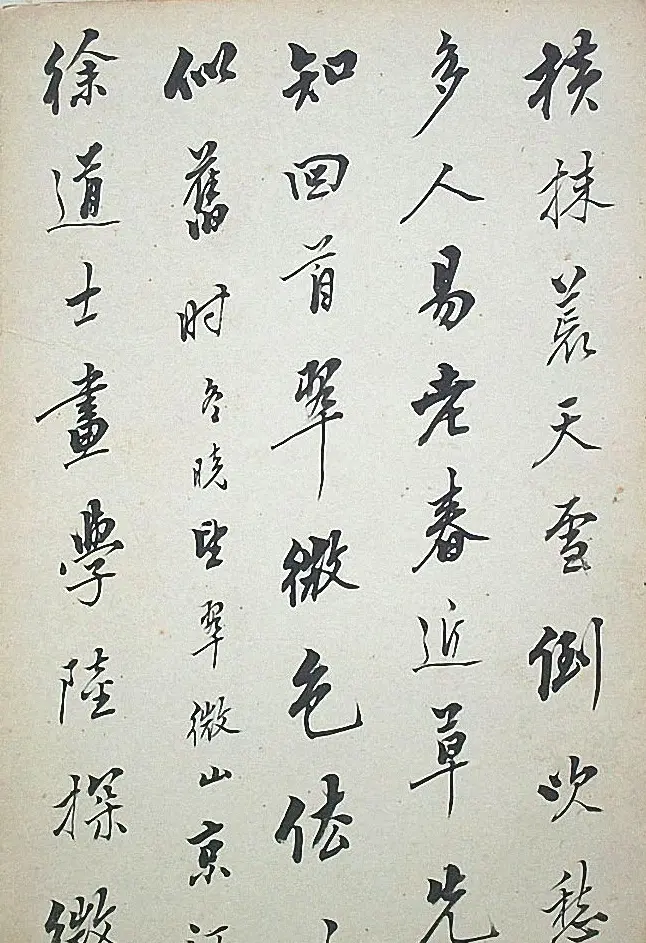 横抹天雪倒吹愁
多人易老春近草先
知回首翠微色依
似舊时冬曉望翠微山京江
徐道士畫學陸探微